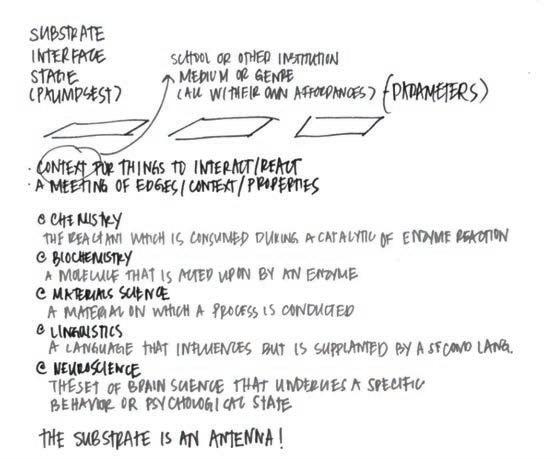 SUBSTRATE
INTERFACE
STAGE
(PALIMPSEST)
SCHOOL OR OTHER INSTITUTION
MEDIUM OR GENRE
(ALL W/THEIR OWN AFFORDANCES)
(PARAMETERS)
· CONTEXT FOR THINGS TO INTERACT/REACT
· A MEETING OF EDGES/CONTEXT/PROPERTIES
@ CHEMISTRY
THE REACTANT WHICH IS CONSUMED DURING A CATALYTIC OF ENZYME REACTION
@ BIOCHEMISTRY
A MOLECULE THAT IS ACTED UPON BY AN ENZYME
@ MATERIALS SCIENCE
A MATERIAL ON WHICH A PROCESS IS CONDUCTED
@ LINGUISTICS
A LANGUAGE THAT INFLUENCES BUT IS SUPPLANTED BY A SECOND LANG.
@ NEUROSCIENCE
THE SET OF BRAIN SCIENCE THAT UNDERLIES A SPECIFIC
BEHAVIOR OR PSYCHOLOGICAL STATE
THE SUBSTRATE IS AN ANTENNA!